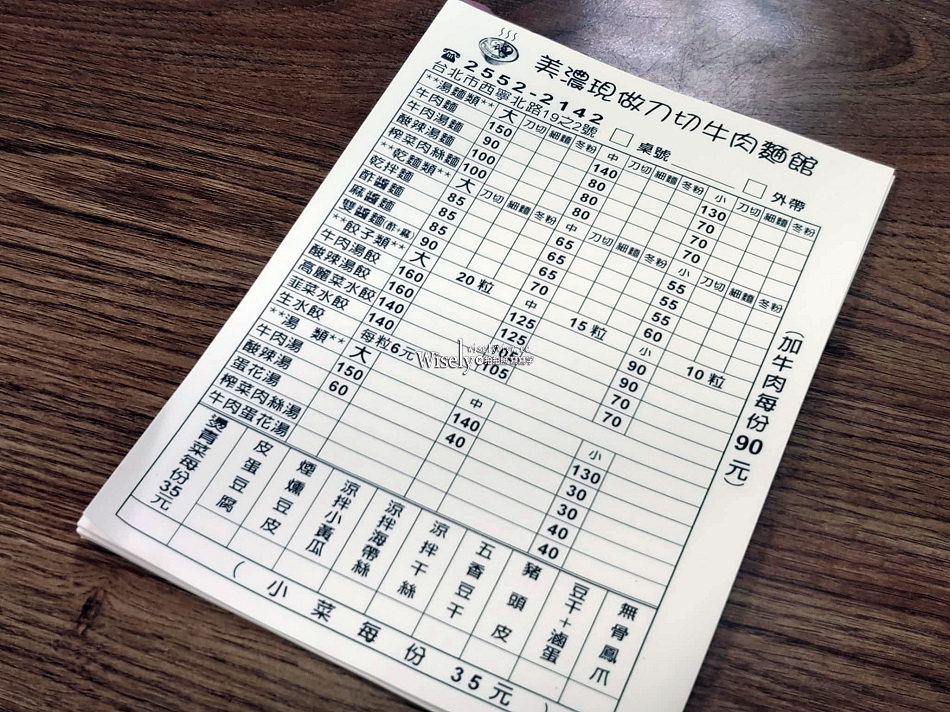 美濃現做刀切牛肉麵館
☎2552-2142
台北市西寧北路19之2號 □ 桌號 □ 外帶
**湯麵類** 大 刀切 細麵 冬粉 中 刀切 細麵 冬粉 小 刀切 細麵 冬粉
牛肉麵 150 140 130
牛肉湯麵 90 80 70
酸辣湯麵 100 80 70
榨菜肉絲麵 100 80 70
**乾麵類** 大 刀切 細麵 冬粉 中 刀切 細麵 冬粉 小 刀切 細麵 冬粉
乾拌麵 85 65 55
酢醬麵 85 65 55
麻醬麵 85 65 55
雙醬麵(酢+麻) 90 70 60
**餃子類** 大 20粒 中 15粒 小 10粒
牛肉湯餃 160 125 90
酸辣湯餃 160 125 90
高麗菜水餃 140 105 70
韭菜水餃 140 105 70
生水餃 每粒6元
**湯 類** 大 中 小
牛肉湯 150 140 130
酸辣湯 60 40 30
蛋花湯 30
榨菜肉絲湯 40
牛肉蛋花湯 40
(加牛肉每份90元)
燙青菜每份35元
皮蛋豆腐
煙燻豆皮
涼拌小黃瓜
涼拌海帶絲
涼拌干絲
五香豆干
豬頭皮
豆干+滷蛋
無骨鳳爪
(小菜每份35元)
Wisely